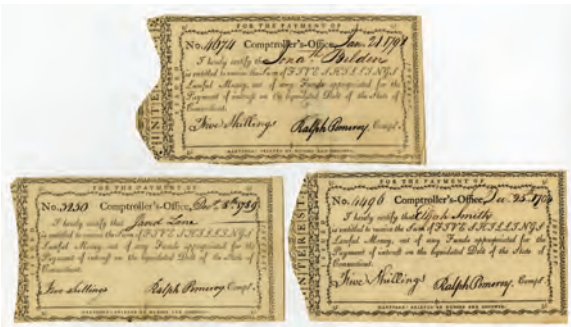 FOR THE PAYMENT OF
No. 4674 Comptroller's-Office, Jan. 21 1791
I hereby certify that Jona.th Belden
is entitled to receive the Sum of FIVE SHILLINGS
Lawful Money, out of any Funds appropriated for the
Payment of interest on the liquidated Debt of the State of
Connecticut.
Five Shillings Ralph Pomeroy, Compt.
HARTFORD: PRINTED BY HUDSON AND GOODWIN.
INTEREST
FOR THE PAYMENT OF
No. 3250 Comptroller's-Office, 8th 1789
I hereby certify that Jared Lane
is entitled to receive the Sum of FIVE SHILLINGS
Lawful Money, out of any Funds appropriated for the
Payment of interest on the liquidated Debt of the State of
Connecticut.
Five shillings Ralph Pomeroy Compt.
HARTFORD: PRINTED BY HUDSON AND GOODWIN.
FOR THE PAYMENT OF
No. 4496 Comptroller's-Office, Dec. 25
I hereby certify that Elijah Smith
is entitled to receive the Sum of FIVE SHILLINGS
Lawful Money, out of any Funds appropriated for the
Payment of interest on the liquidated Debt of the State of
Connecticut.
Five Shillings Ralph Pomeroy, Compt.
HARTFORD: PRINTED BY HUDSON AND GOODWIN.
INTEREST